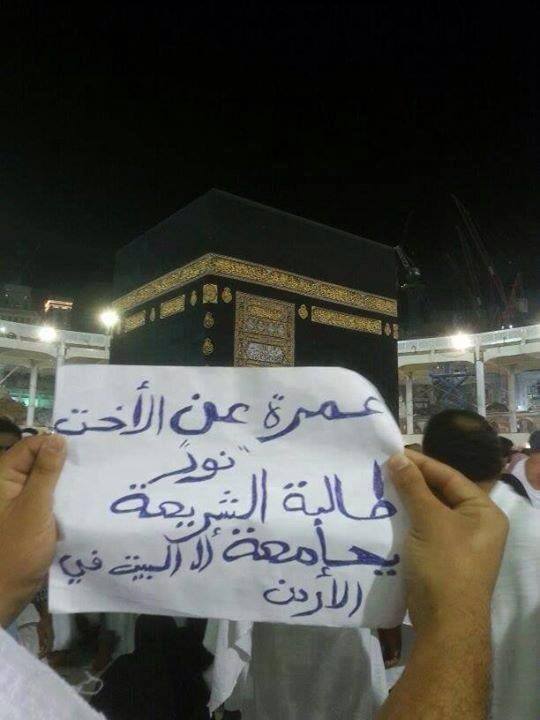 عمرة عن الأخت
"نور"
طالبة الشريعة
بجامعة آل البيت في
الأردن